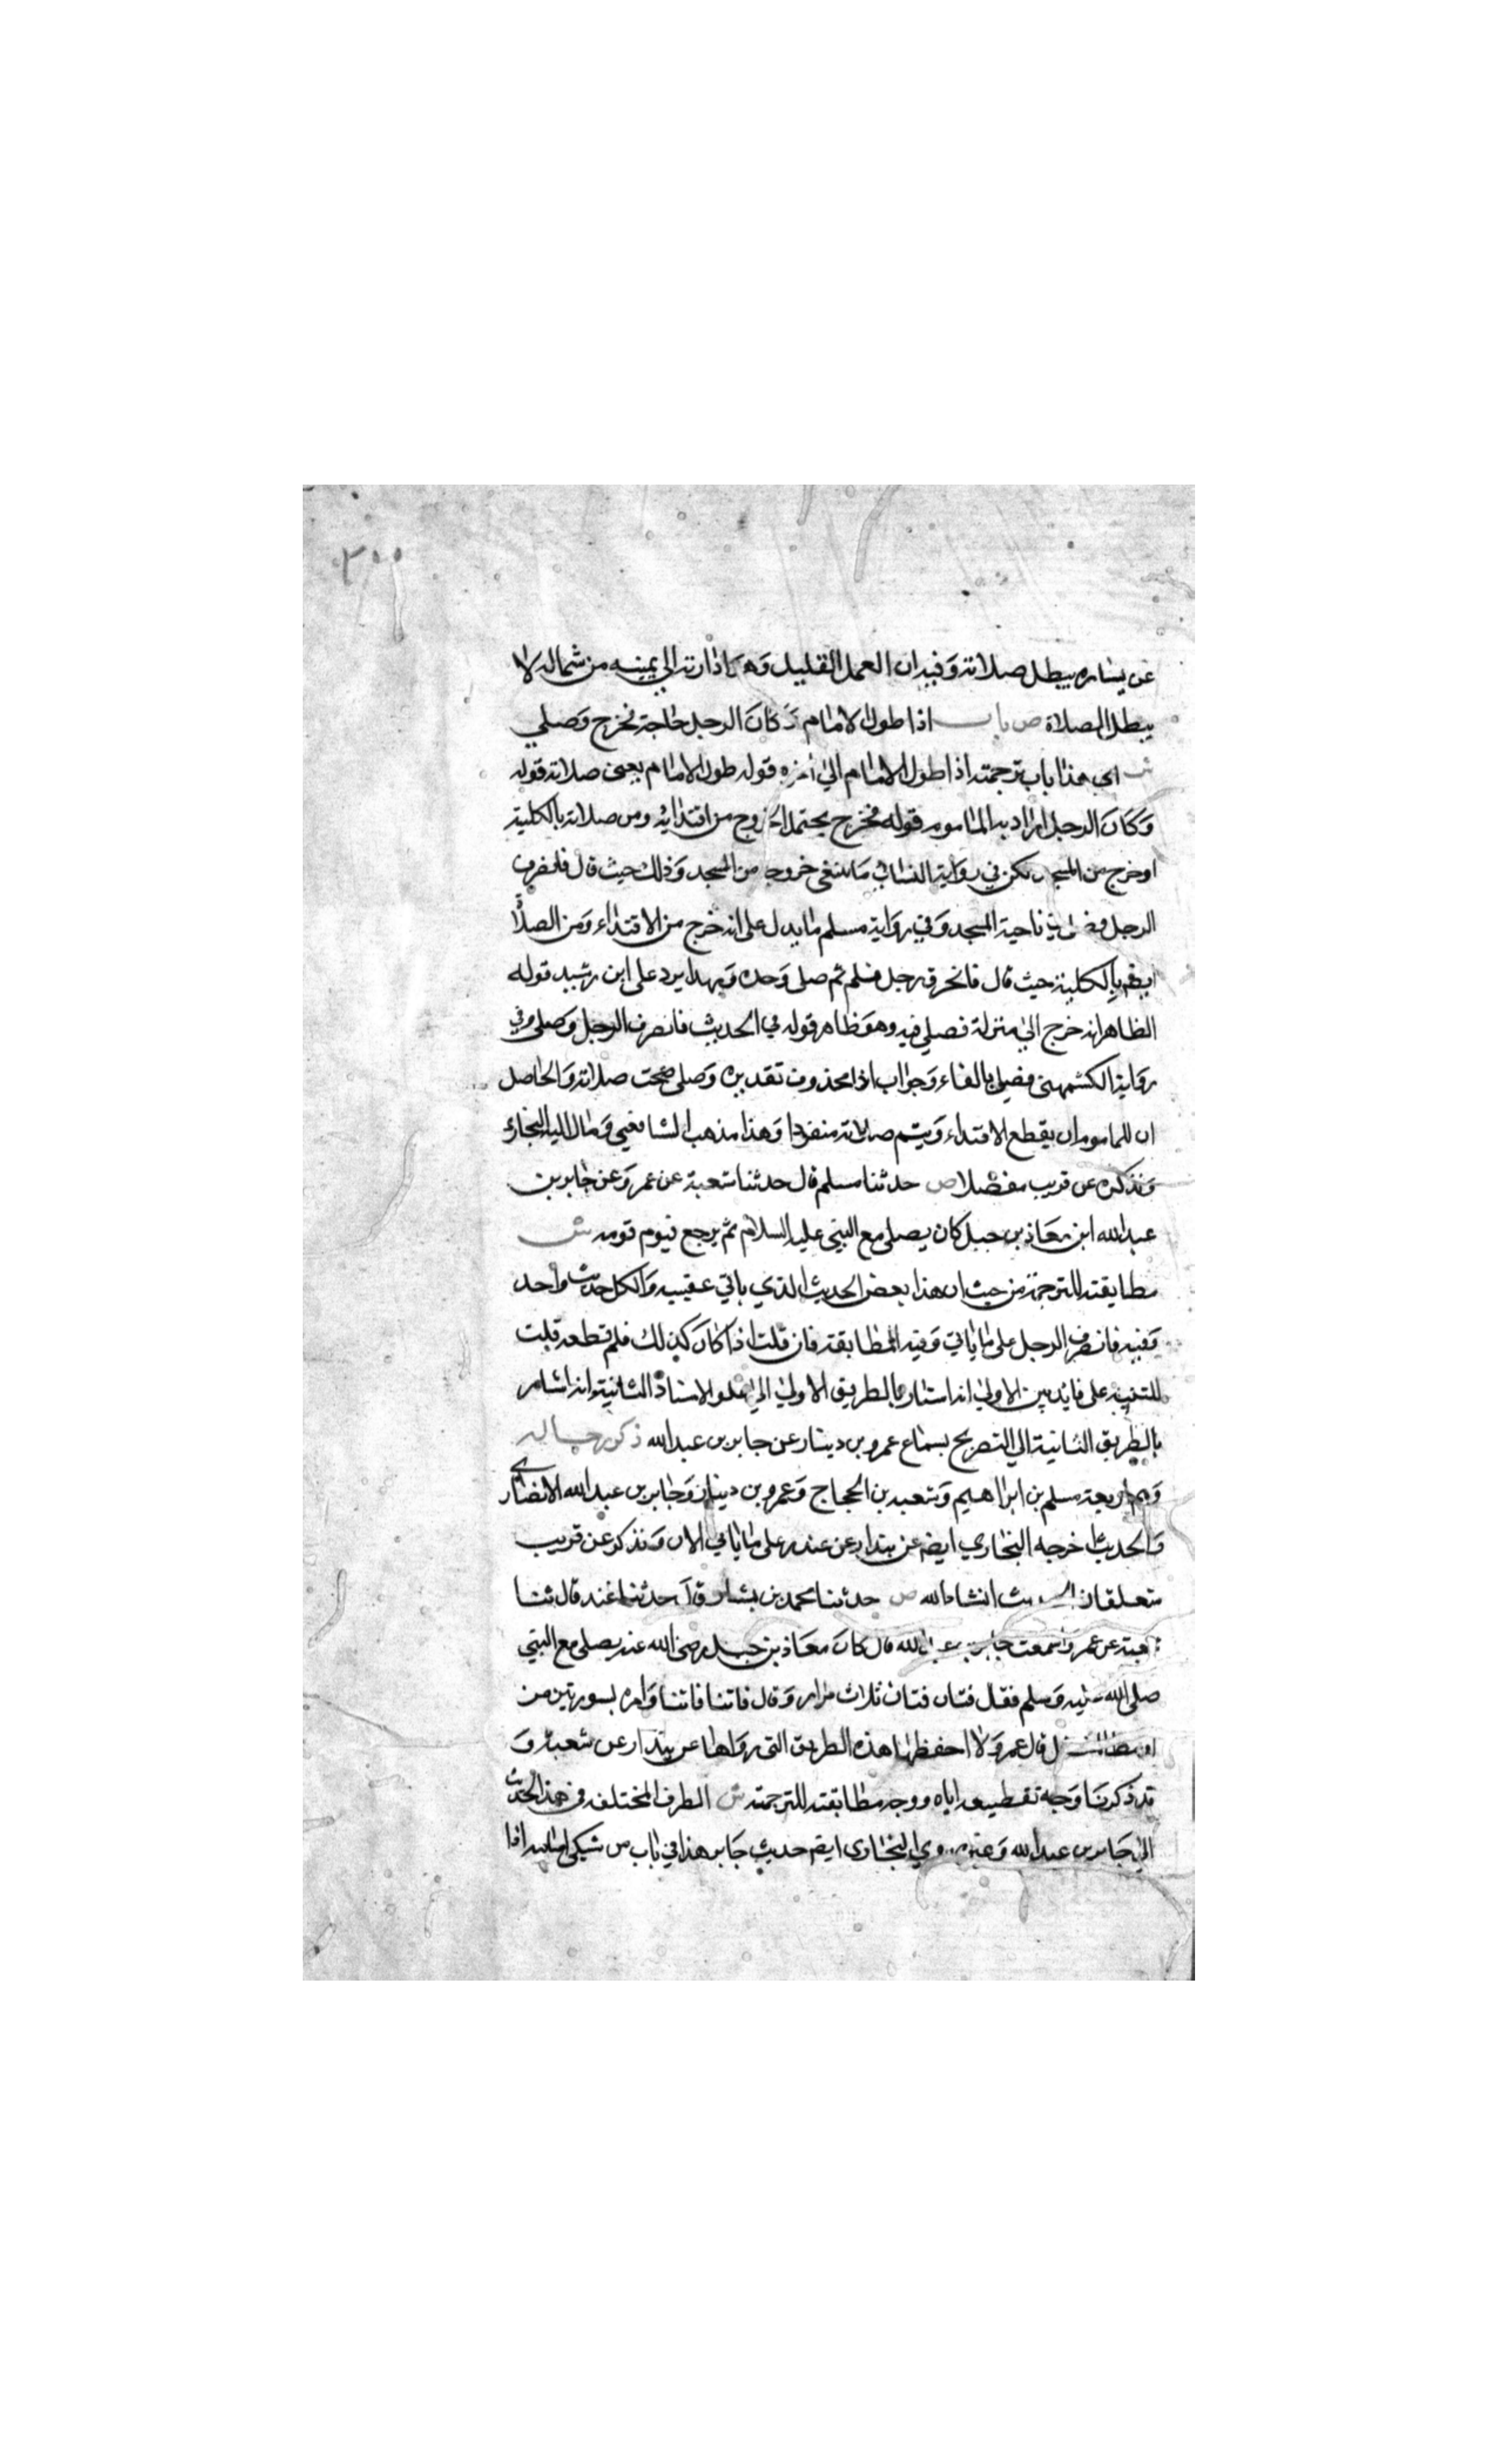 ٣٠٠
عن يساره يبطل صلاته وفيه ان العمل القليل وهو اذارته الي يمينه من شماله لا
يبطل الصلاة ص باب اذا طول الامام وكان الرجل حاجة فخرج وصلي
ش اي هذا باب ترجمته اذا طول الامام الي اخره قوله طول الامام يعني صلاته قوله
وكان الرجل اراد به الماموم قوله فخرج يحتمل الخروج من اقتدائه ومن صلاته بالكلية
او خرج من المسجد لكن في رواية النسائي ما ينفي خروجه من المسجد وذلك حيث قال فانصرف
الرجل فصلي في ناحية المسجد وفي رواية مسلم ما يدل علي انه خرج من الاقتداء ومن الصلاة
ايضم بالكلية حيث قال فانحرف رجل فسلم ثم صلي وحده وبهذا يرد علي ابن رشيد قوله
الظاهر انه خرج الي منزلة فصلي فيه وهو ظاهر قوله في الحديث فانصرف الرجل وصلي وفي
رواية الكشمهني فصلي بالفاء وجواب اذا محذوف تقديره وصلي صحت صلاته والحاصل
ان للماموم ان يقطع الاقتداء ويتم صلاته منفردا وهذا مذهب الشافعي ومال اليه البخاري
ونذكره عن قريب مفصلا ص حدثنا مسلم قال حدثنا شعبة عن عمرو عن جابر بن
عبد الله ابن معاذ بن جبل كان يصلي مع النبي عليه السلام ثم يرجع فيوم قومه ش
مطابقته للترجمة من حيث ان هذا بعض الحديث الذي ياتي عقيبه والكل حديث واحد
وفيه فانصرف الرجل علي ما ياتي وفيه المطابقة فان قلت اذا كان كذلك فلم قطعه قلت
للتنبيه علي فائدتين الاولي انه اشار بالطريق الاولي الي علو الاسناد الثانية انه اشار
بالطريق الثانية الي التصريح بسماع عمرو بن دينار عن جابر بن عبد الله ذكر رجاله
وهم اربعة مسلم بن ابراهيم وشعبة بن الحجاج وعمرو بن دينار وجابر بن عبد الله الانصاري
والحديث اخرجه البخاري ايضم عن بندار عن غندر علي ما ياتي الان ونذكر عن قريب
متعلقات الحديث انشاء الله ص حدثنا محمد بن بشار قال حدثنا غندر قال ثنا
شعبة عن عمرو سمعت جابر بن عبد الله قال كان معاذ بن جبل رضي الله عنه يصلي مع النبي
صلي الله عليه وسلم فقال فتان فتان فتان ثلاث مرار وقال فاتنا فاتنا وامره بسورتين من
اوسط المفصل قال عمرو لا احفظهما هذه الطريق التي رواها عن بندار عن شعبة و
قد ذكرنا وجه تقطيعه اياه ووجه مطابقته للترجمة ش الطرف المختلف في هذا الحديث
الي جابر بن عبد الله وغيره روي البخاري ايضم حديث جابر هذا في باب من شكي امامه اذا